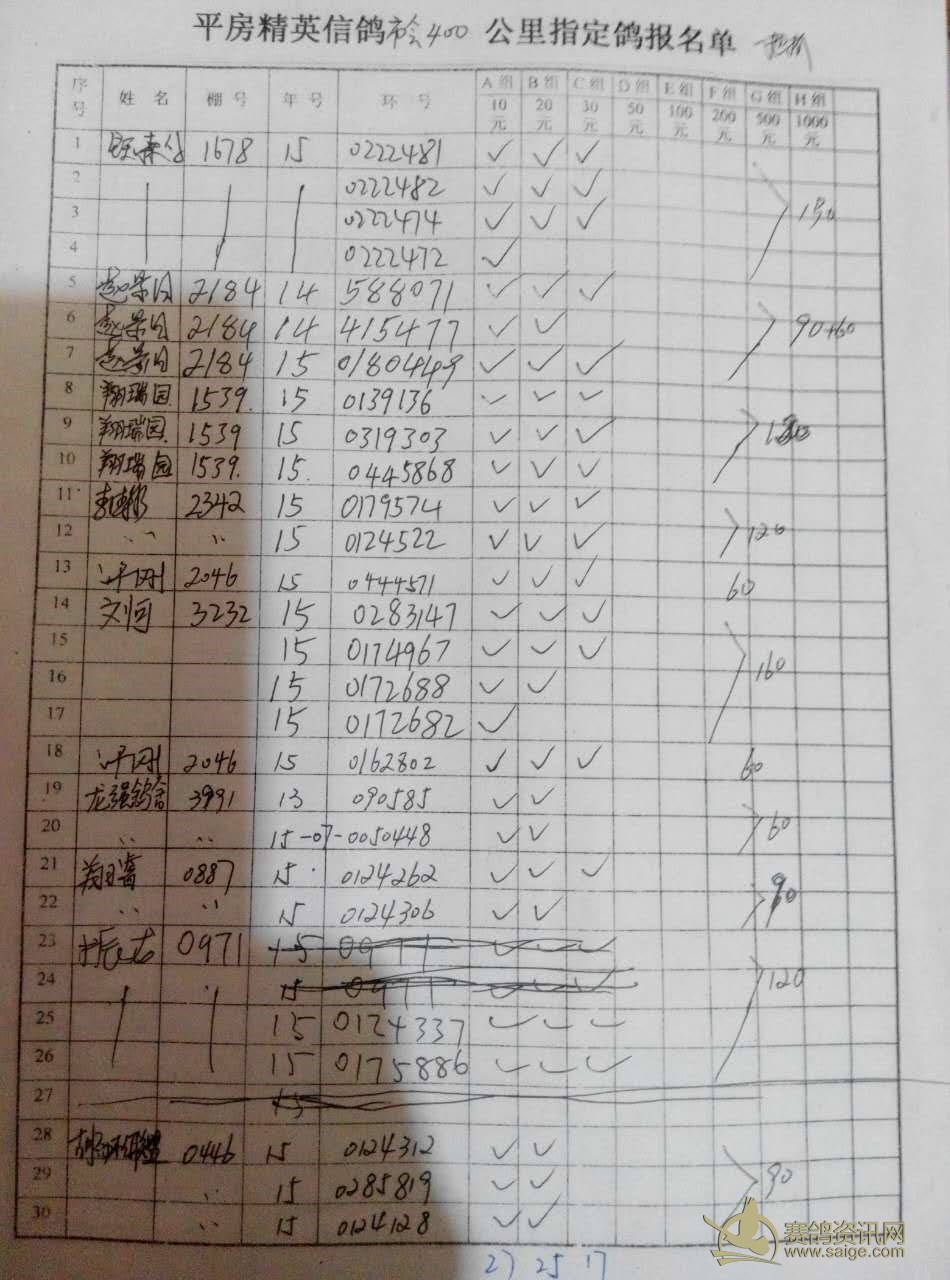 平房精英信鸽 400 公里指定鸽报名单
序号 姓 名 棚 号 年 号 环 号 A组 10元 B组 20元 C组 30元 D组 50元 E组 100元 F组 200元 G组 500元 H组 1000元
1 1678 15 0222481 ✓ ✓ ✓
2 0222482 ✓ ✓ ✓
3 0222474 ✓ ✓ ✓ 190
4 0222472 ✓
5 赵景日 2184 14 588071 ✓ ✓ ✓
6 赵景日 2184 14 415477 ✓ ✓ 90+60
7 赵景日 2184 15 01804449 ✓ ✓ ✓
8 翔瑞园 1539. 15 0139136 ✓ ✓ ✓
9 翔瑞园 1539 15 0319303 ✓ ✓ ✓ 180
10 翔瑞园 1539. 15. 0445868 ✓ ✓ ✓
11 2342 15 0179574 ✓ ✓ ✓
12 〃 〃 15 0124522 ✓ ✓ ✓ 120
13 2046 15 0444571 ✓ ✓ ✓ 60
14 文河 3232 15 0283147 ✓ ✓ ✓
15 15 0174967 ✓ ✓ ✓ 160
16 15 0172688 ✓ ✓
17 15 0172682 ✓
18 2046 15 0162802 ✓ ✓ ✓ 60
19 龙强鸽舍 3991 13 090585 ✓ ✓
20 〃 〃 15-07-0050448 ✓ ✓ 60
21 0887 15 0124262 ✓ ✓ ✓
22 〃 〃 15 0124306 ✓ ✓ 90
23 0971 15
24 15 120
25 15 0124337 ✓ ✓ ✓
26 15 0175886 ✓ ✓ ✓
27 15
28 0446 15 0124312 ✓ ✓
29 〃 15 0285819 ✓ ✓ 90
30 〃 15 0124128 ✓ ✓
27 25 17
赛鸽资讯网
www.saige.com